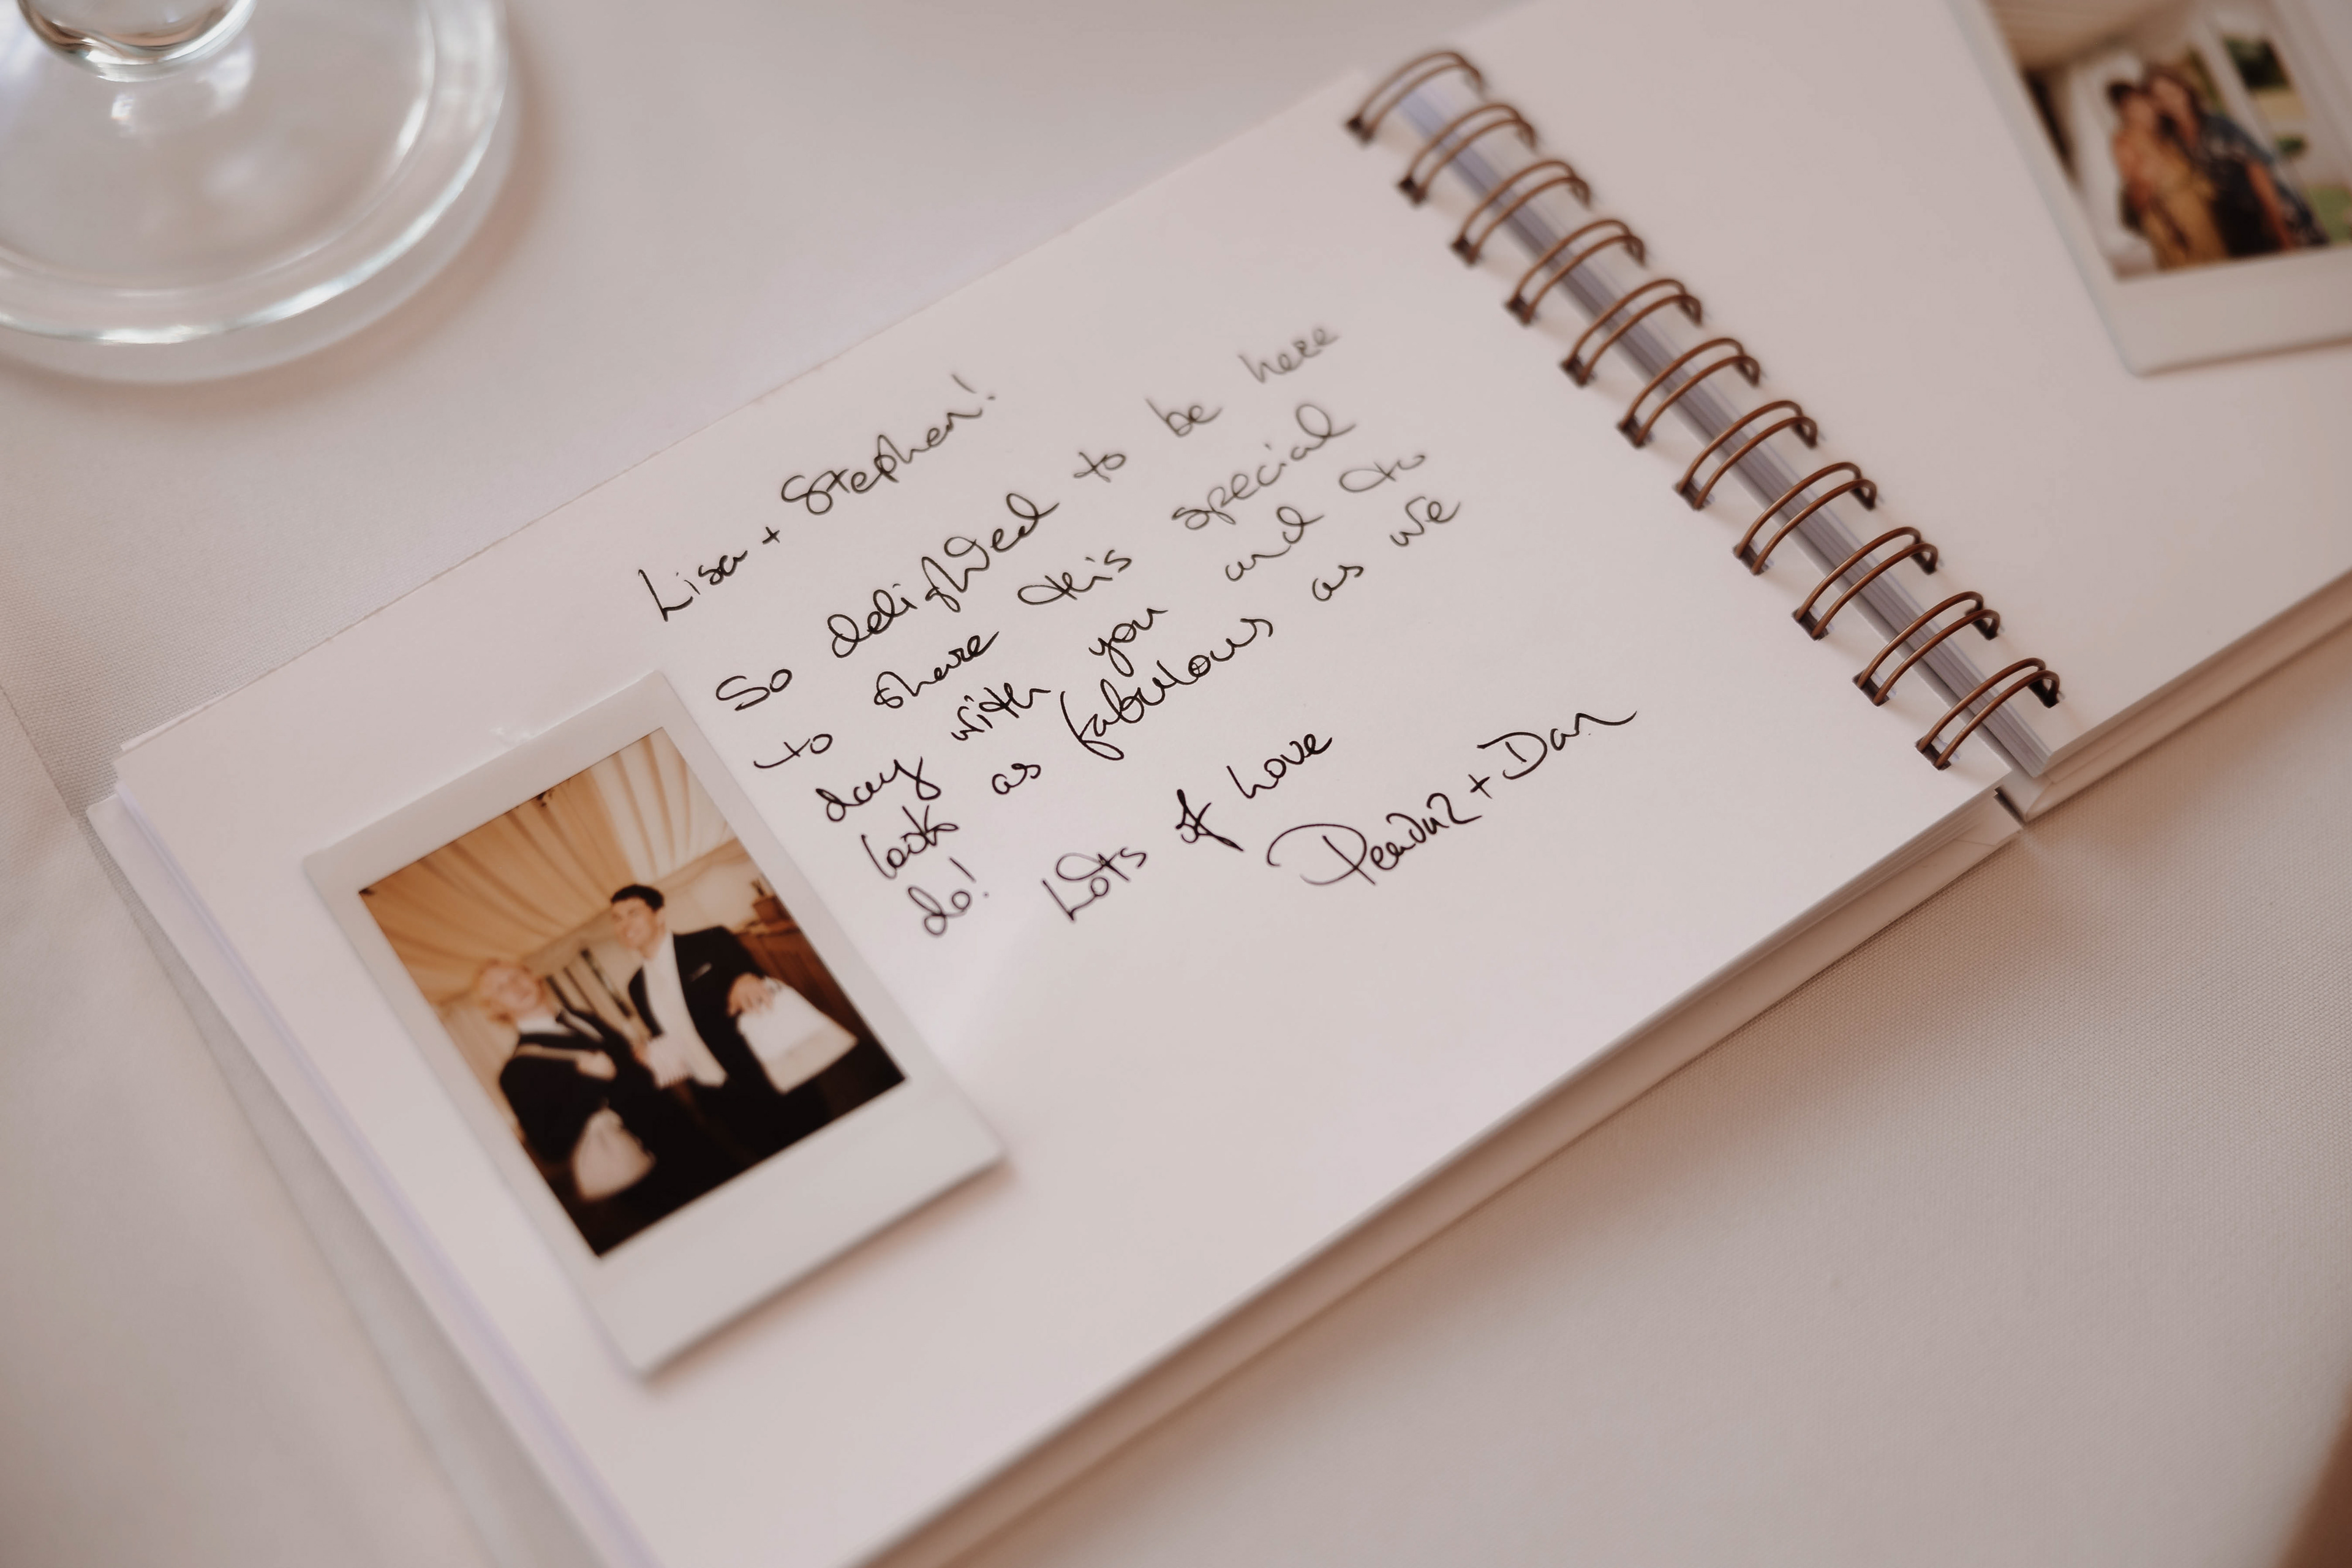 Lisa + Stephen!
So delighted to be here
to share this special
day with you and to
look as fabulous as we
do!
Lots of Love
+ Dan